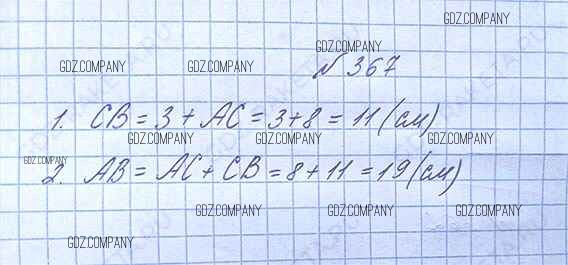 GDZ.COMPANY
GDZ.COMPANY GDZ.COMPANY GDZ.COMPANY
№ 367
1. CB = 3 + AC = 3+8 = 11 (см)
GDZ.COMPANY GDZ.COMPANY GDZ.COMPANY
GDZ.COMPANY
2. AB = AC + CB = 8 + 11 = 19 (см)
GDZ.COMPANY GDZ.COMPANY GDZ.COMPANY
GDZ.COMPANY